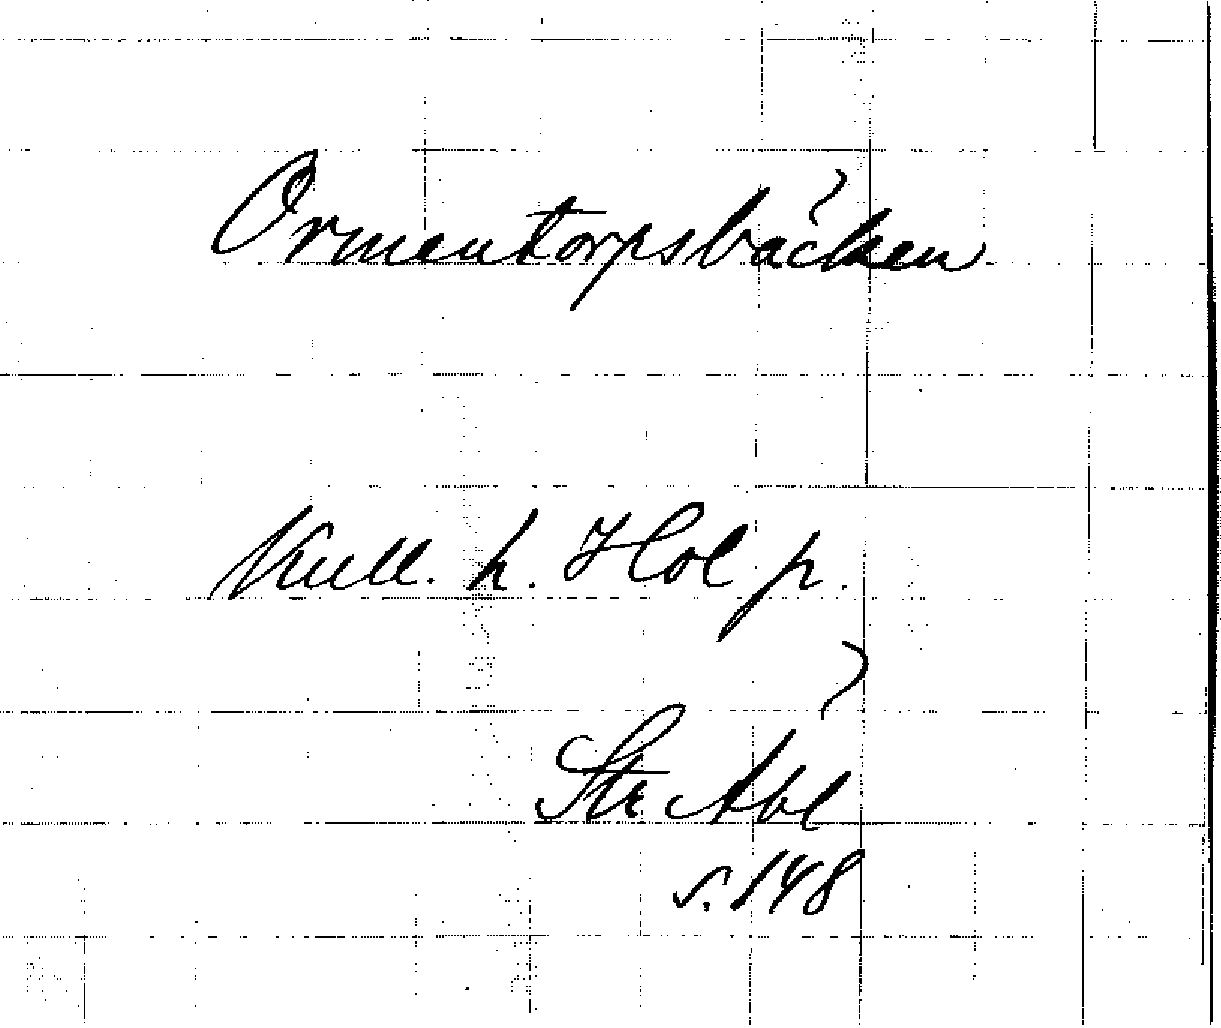 Ormentorpsbäcken
Kull. h. Hol p.
Str. Äbl
s. 148